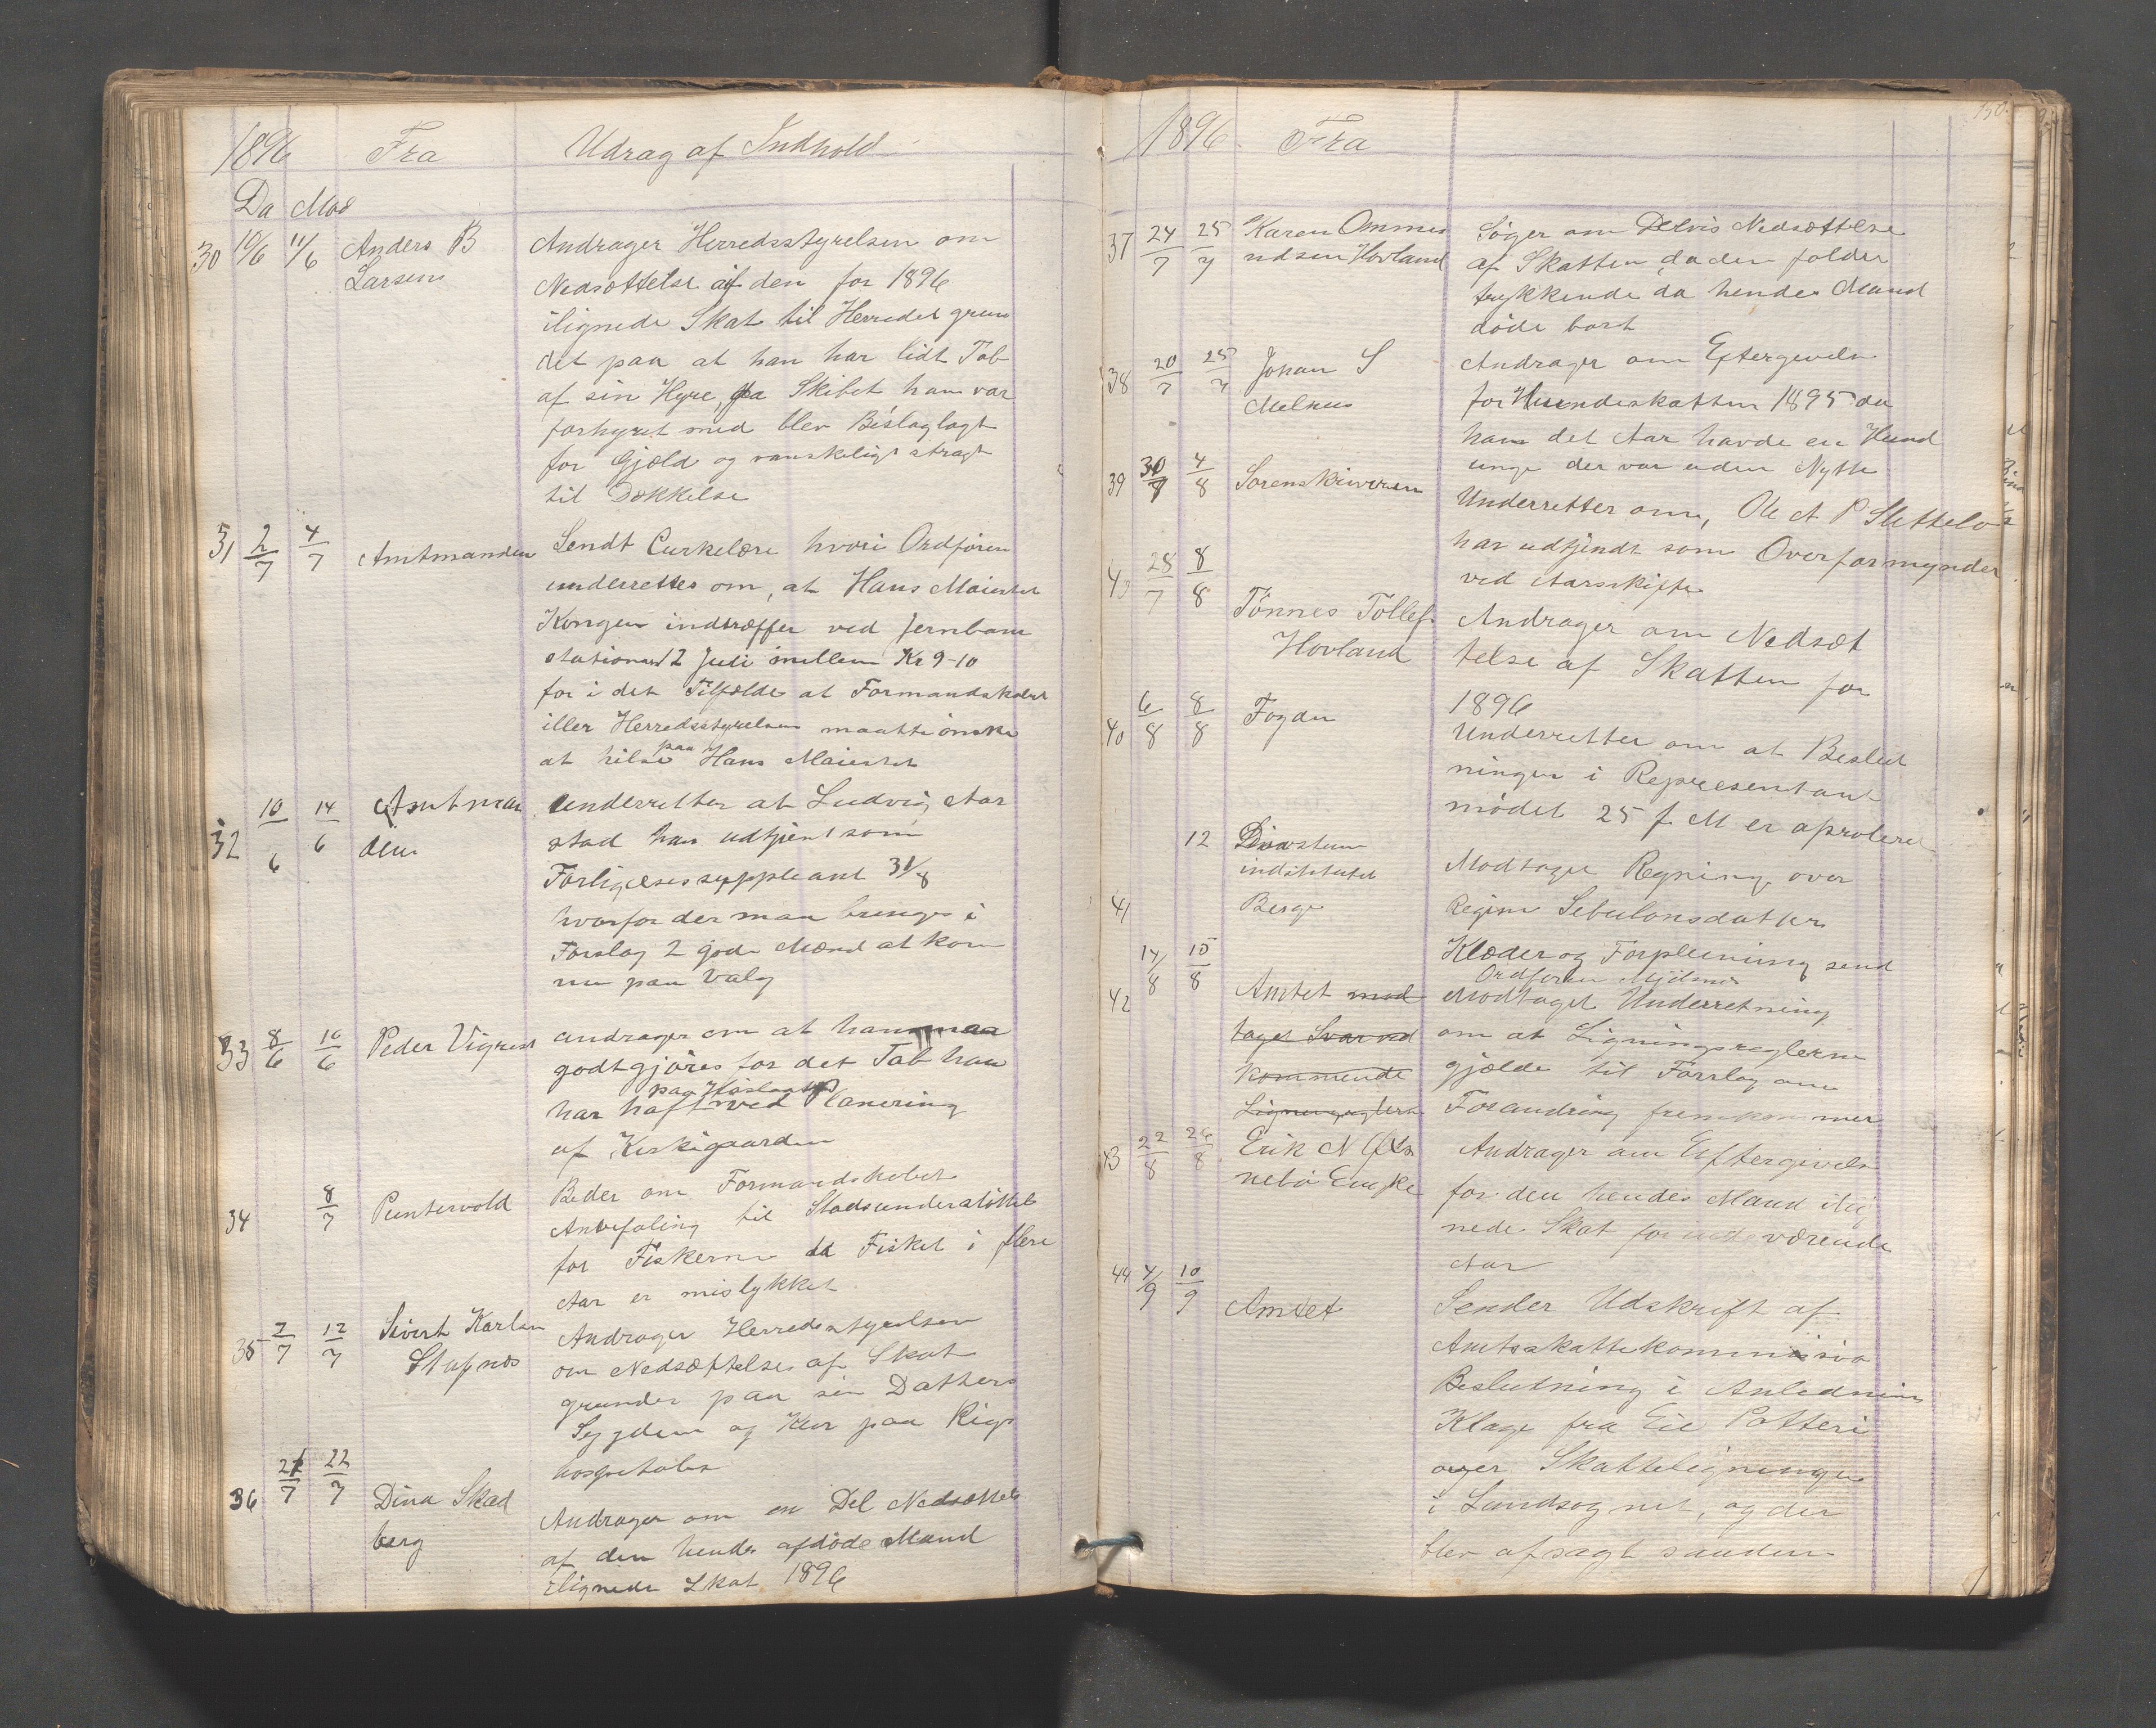 1896 Fra Udrag af Indhold
Da Mod
30 10/6 11/6 Anders B Andrager Herredsstyrelsen om
Larsen Nedsættelse af den for 1896
ilignede Skat til Herredet grun
det paa at han har lidt Tab
af sin Hyre, da Skibet han var
forhyret med blev Beslaglagt
for Gjæld og vanskeligt stragt
til Dækkelse
31 2/7 4/7 Amtmanden Sendt Curkelære hvori Ordføren
underrettes om, at Hans Maiestet
Kongen indtræffer ved Jernbane
stationen 12 Juli mellem Kr 9-10
for i det Tilfælde at Formandskabet
eller Herredsstyrelsen maatte ønske
at hilse paa Hans Maiestet
32 10/6 14/6 Amtman Underretter at Ludvig Aar
den stad har udtjent som
Forligelsessuppleant 31/8
hvorfor der maa bringes i
Forslag 2 gode Mænd at kom
me paa Valg
33 8/6 10/6 Peder Vigrest andrager om at han maa
godtgjøres for det Tab han
paa Høslaatten
har haft ved Planering
af Kirkigaarden
34 8/7 Puntervold Beder om Formandskabets
Anbefaling til Stadsunderstøttels
for Fiskerne da Fisket i flere
Aar er mislykket
35 7/7 12/7 Sivert Karlsen Andrager Herredsstyrelsen
Stapnes om Nedsættelse af Skat
grunder paa sin Datters
Sygdom og Kur paa Rigs
hospitalet
36 21/7 22/7 Dina Skad Andrager om en Del Nedsættels
berg af den hendes afdøde Mand
ilignede Skat 1896
1896. Fra 150.
37 24/7 25/7 Karen Ommun Søger om Delvis Nedsættelse
ndsen Hovland af Skatten, da den falder
trykkende da hendes Mand
døde bort
38 20/7 25/7 Johan S Andrager om Eftergivelse
Melhus for Hundeskatten 1895 da
han det Aar havde en Hund
unge der var uden Nytte
39 30/7 4/8 Sorenskriveren Underretter om, Ole A P Slettebø
har udtjendt som Overformynder
ved Aarsskifte
40 28/7 8/8 Tønnes Tollefs Andrager om Nedsæt
Hovland telse af Skatten for
1896
40 6/8 8/8 Fogden Underretter om at Beslut
ningen i Representant
mødet 25 f. M er aproberet
12 Døvstum Modtaget Regning over
indstitutet
41 Berge Regine Sebulonsdatter
Klæder og Forpleining send
Ordføren
42 14/8 15/8 Amtet mod Modtaget Underretning
taget Svar ved om at Ligningsreglerne
kommende gjælde til Forslag om
Ligningreglerne Forandring fremkommer
43 22/8 26/8 Erik N Andrager om Eftergivels
nebø Enke for den hendes Mand ilig
nede Skat for indeværende
Aar
44 4/9 10/9 Amtet Sender Udskrift af
Amtsskattekommisio
Beslutning i Anledning
Klage fra Eie Potteri
over Skatteligningen
i Landsognet, og der
blev afsagt saadan